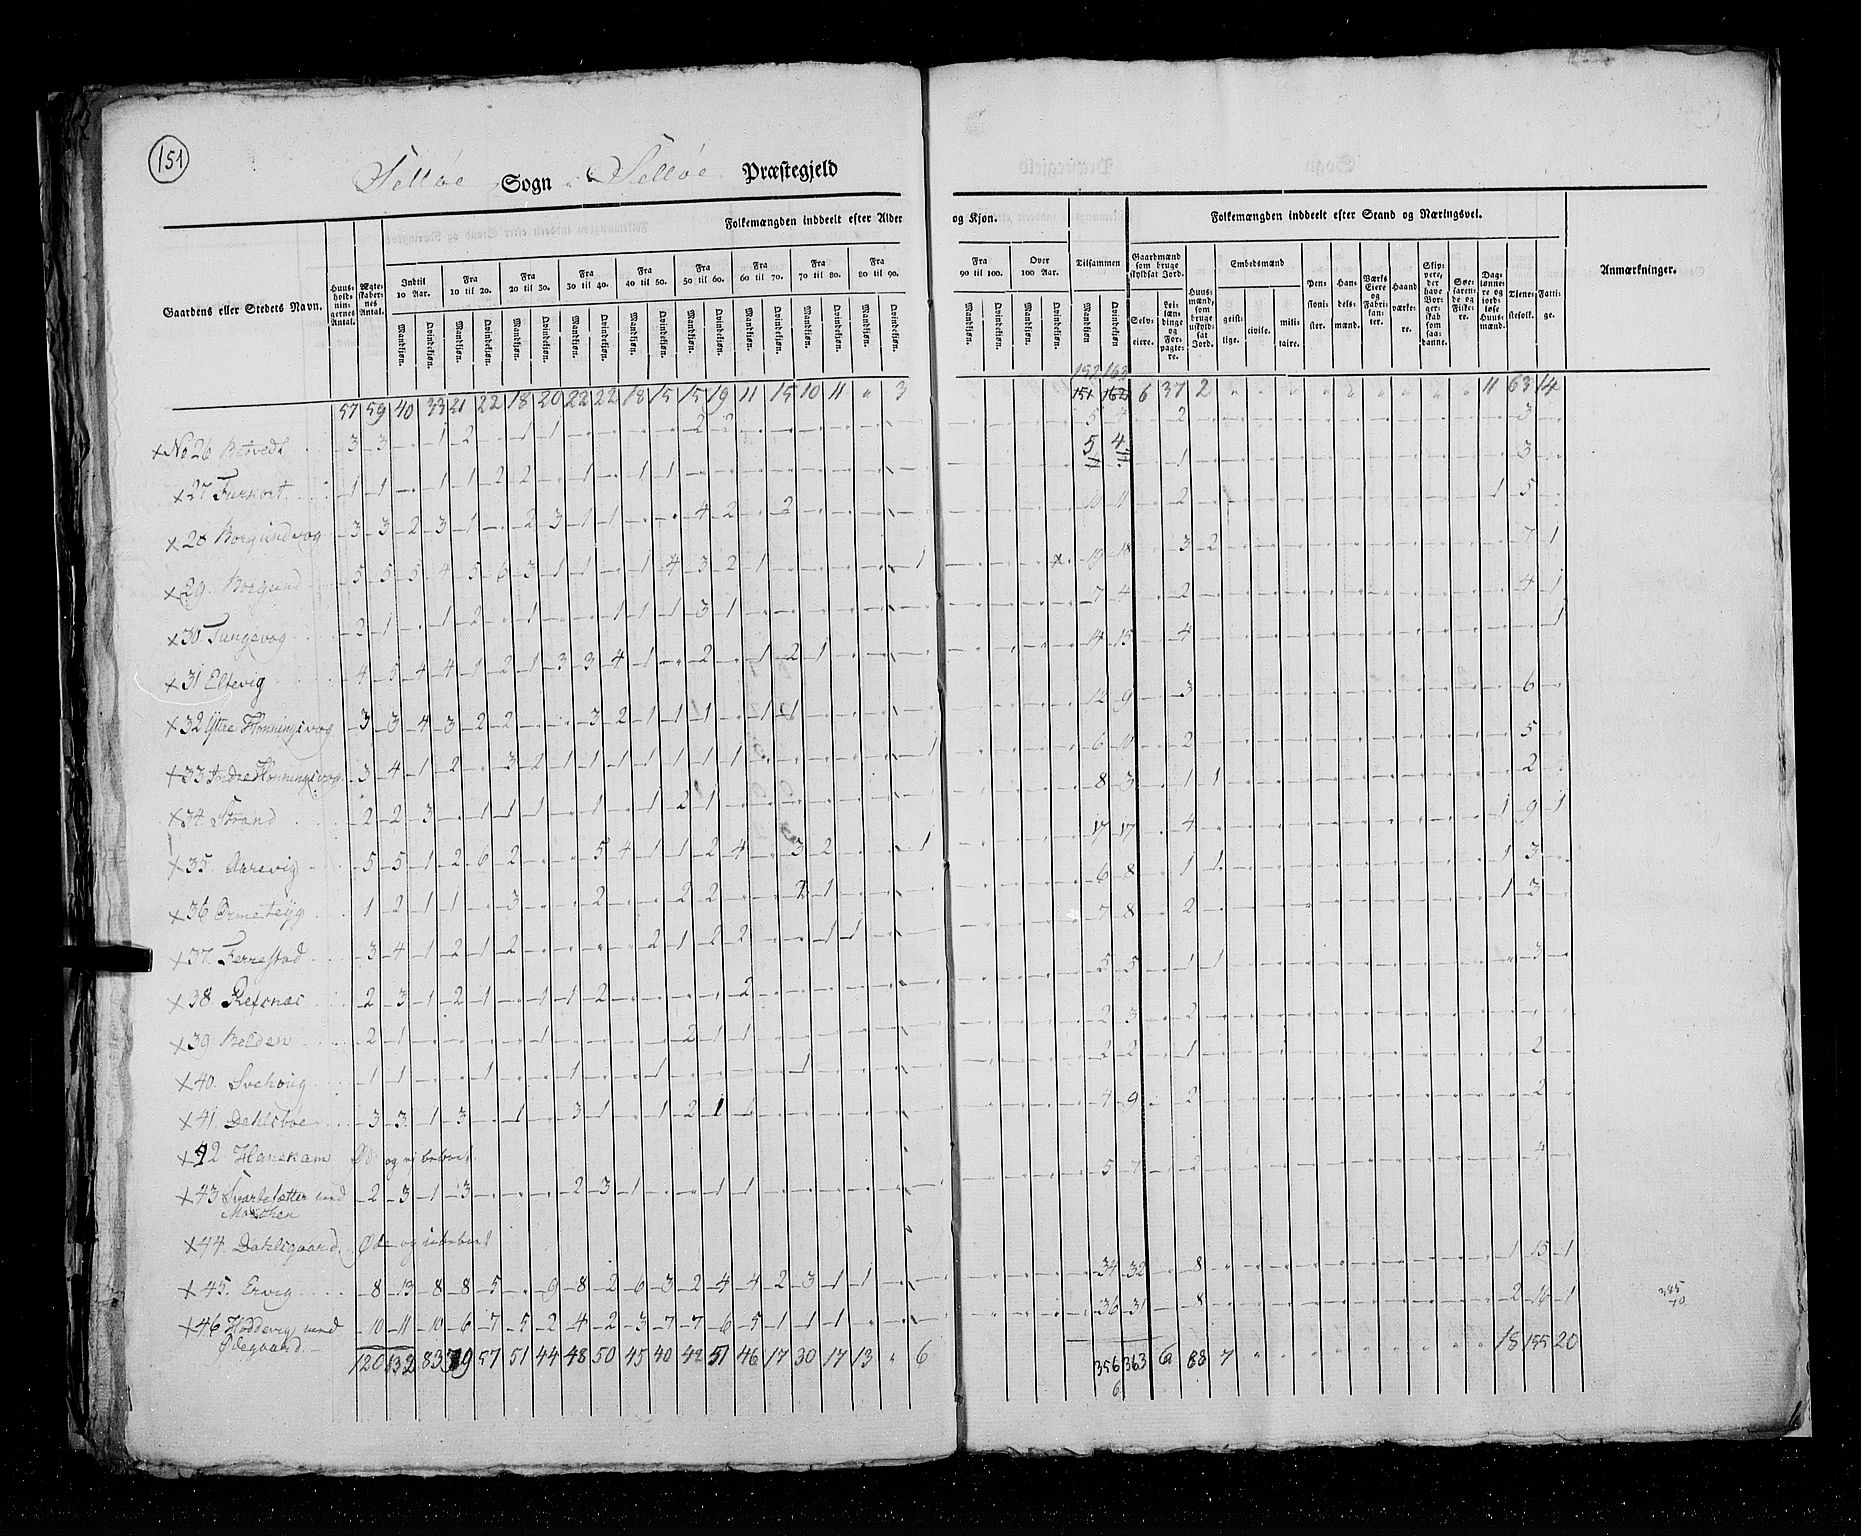 151
Selløe Sogn Selløe Præstegjeld
Folkemængden inddeelt efter Alder og Kjøn.
Folkemængden inddeelt efter Stand og Næringsvei.
Gaardens eller Stedets Navn.
Huus-holdnin-gernes Antal.
Ægte-skaber-nes Antal.
Indtil 10 Aar.
Fra 10 til 20.
Fra 20 til 30.
Fra 30 til 40.
Fra 40 til 50.
Fra 50 til 60.
Fra 60 til 70.
Fra 70 til 80.
Fra 80 til 90.
Fra 90 til 100.
Over 100 Aar.
Tilsammen
Mandkjøn. Qvindekjøn.
Gaardmænd som bruge skyldsat Jord.
Selv-eiere.
Lei-læn-dinge og For-pagte-re.
Huus-mænd, som bruge uskyld-sat Jord.
Embedsmænd
geist-lige. civile. mili-taire.
Pen-sioni-ster.
Han-dels-mænd.
Værks Eiere og Fabri-kan-ter.
Haand værke-re.
Skip-pere, der have Bor-ger-skab som saa-danne.
Søe-faren-de og Fiske-re.
Dag-lønne-re og jord-løse Huus-mænd.
Tjene-stefolk.
Fatti-ge.
Anmærkninger.
152 163
57 59 40 33 21 22 18 20 22 22 18 15 15 19 11 15 10 11 " 3 151 162 6 37 2 11 63 14
x No 26 Betvedt 3 3 1 2 1 1 2 2 5 3 2 3
5 4
x 27 Furvort 1 1 1 1 2 2 1 1 1 1 3
x 28 Borgundvog 3 3 2 3 1 2 3 1 1 4 2 2 10 11 2 1 5
x 29. Borgund 5 5 5 4 5 6 3 1 1 1 4 3 2 1 1 19 18 3 2 7 1
x 30 Tungevog 2 1 1 2 1 1 1 1 3 1 7 4 2 4 1
x 31 Eltevig 4 5 4 4 1 2 1 3 3 4 1 2 1 2 1 14 15 4 1
x 32 Yttre Honningsvog 3 3 4 3 2 2 3 2 1 1 1 1 1 12 9 3 6
x 33 Indre Honningsvog 3 4 1 2 3 2 1 1 1 1 1 1 1 1 6 10 2 5
x 34. Strand 2 2 3 1 1 1 1 1 2 1 8 3 1 1 2
x 35. Aarevig 5 5 1 2 6 2 5 4 1 1 2 4 3 2 1 17 17 4 1 9 1
x 36 1 2 1 1 3 2 2 2 2 1 6 8 1 1 1 3
x 37. Ferrestad 3 4 1 2 1 2 2 1 2 2 1 1 7 8 2 1 3
x 38 Refsnæs 2 3 1 2 1 1 1 2 2 5 5 1 1 3
x 39 Belden 2 1 1 2 1 1 2 3 2
x 40. Svehoug 1 1 1 1 1 1 2 2 1 2
x 41. Dahlsboe 3 3 1 3 1 3 1 1 2 1 1 4 9 2 2
x 42 Hanekam Øde og ubeboet
x 43 Svartelætter med 2 3 1 3 2 3 1 1 1 5 7 2 4
x 44. Dahlsgaard. Øde og ubeboet
x 45. Ervig 8 13 8 8 5 9 8 2 6 3 2 4 4 2 3 1 1 34 32 8 1 15 1
x 46 Hoddevig med 10 11 10 6 7 5 2 4 2 3 7 7 6 5 1 1 1 36 31 8 2 16 1
Ødegaard
120 132 83 79 57 51 44 48 50 45 40 42 51 46 17 30 17 13 " 6 356 363 6 88 7 18 155 20
6
385
70